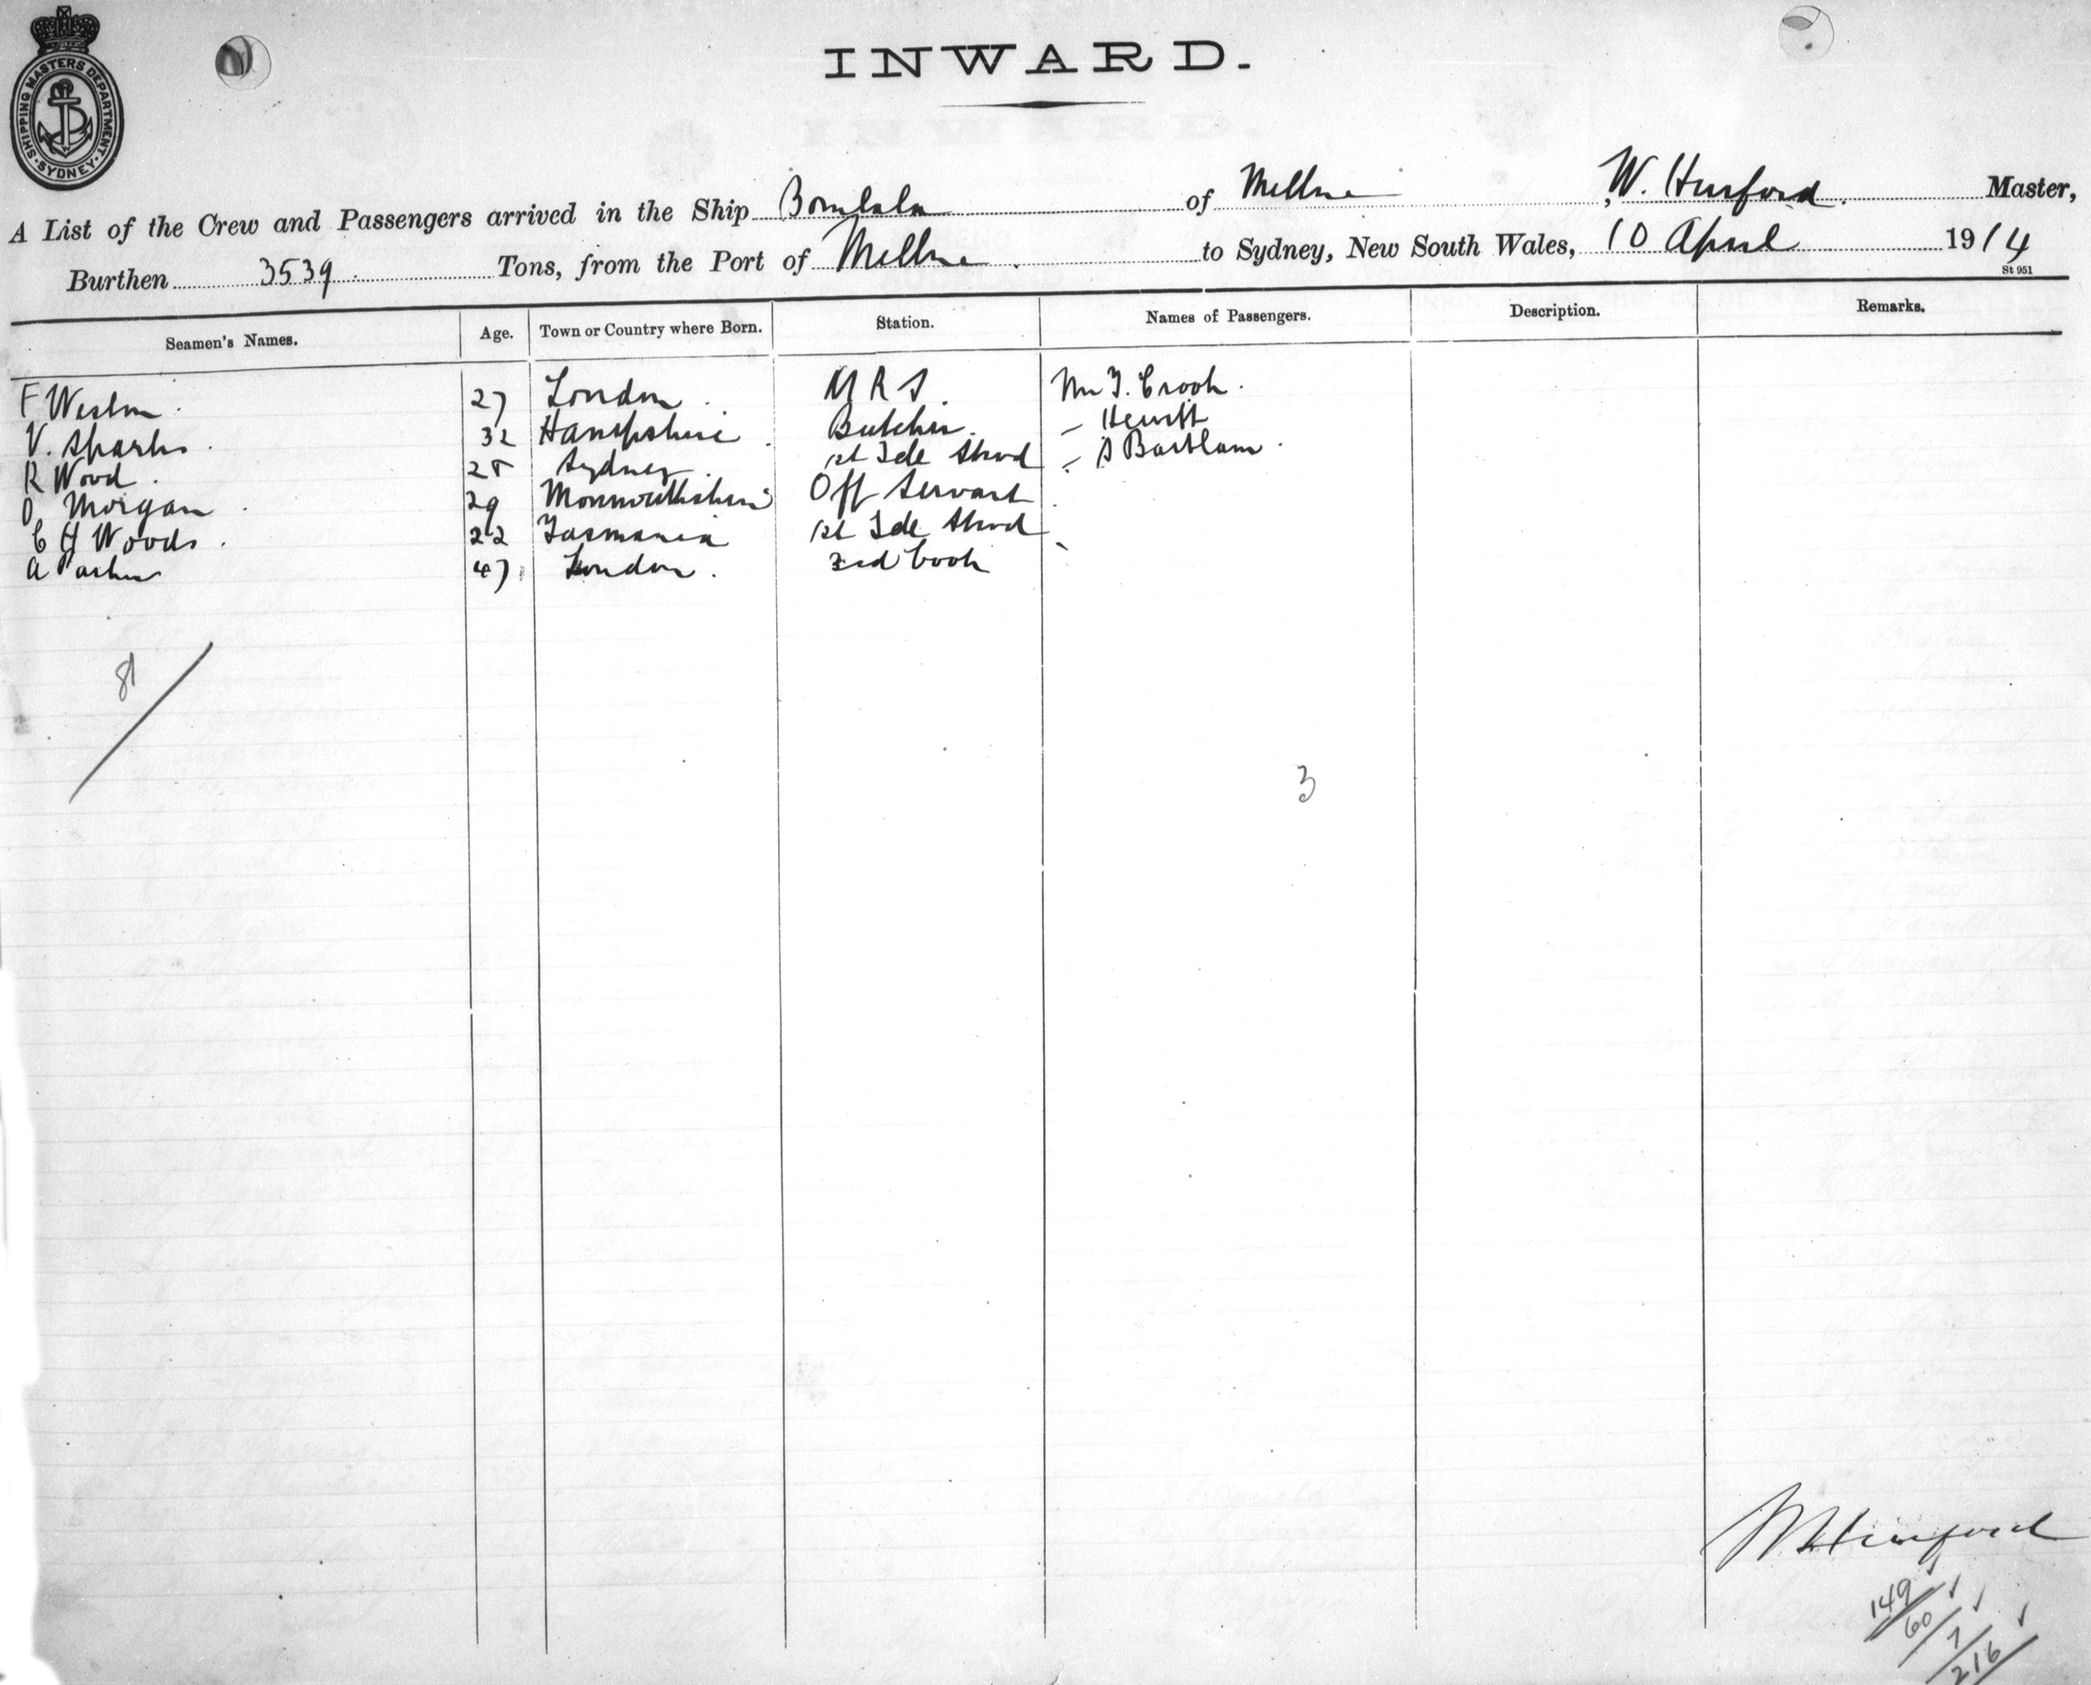 SHIPPING MASTERS DEPARTMENT. SYDNEY
INWARD.
A List of the Crew and Passengers arrived in the Ship Bombala of Mellne, W. Hurford. Master,
Burthen 3539 Tons, from the Port of Mellne. to Sydney, New South Wales, 10 April 1914
St 951
Seamen's Names. Age. Town or Country where Born. Station. Names of Passengers. Description. Remarks.
F Weston. 27 London. M R S. Mr T. Crook.
V. Sparks. 32 Hampshire. Butcher. - Hewitt
R Wood. 28 Sydney. 1st Sde Stwd - A Bartlam.
D Morgan. 29 Monmouthshire Off Servant
C H Woods. 22 Tasmania 1st Sde Stwd
A Parker 47 London. 3rd Cook
81
3
W Hurford
149
60
7
216